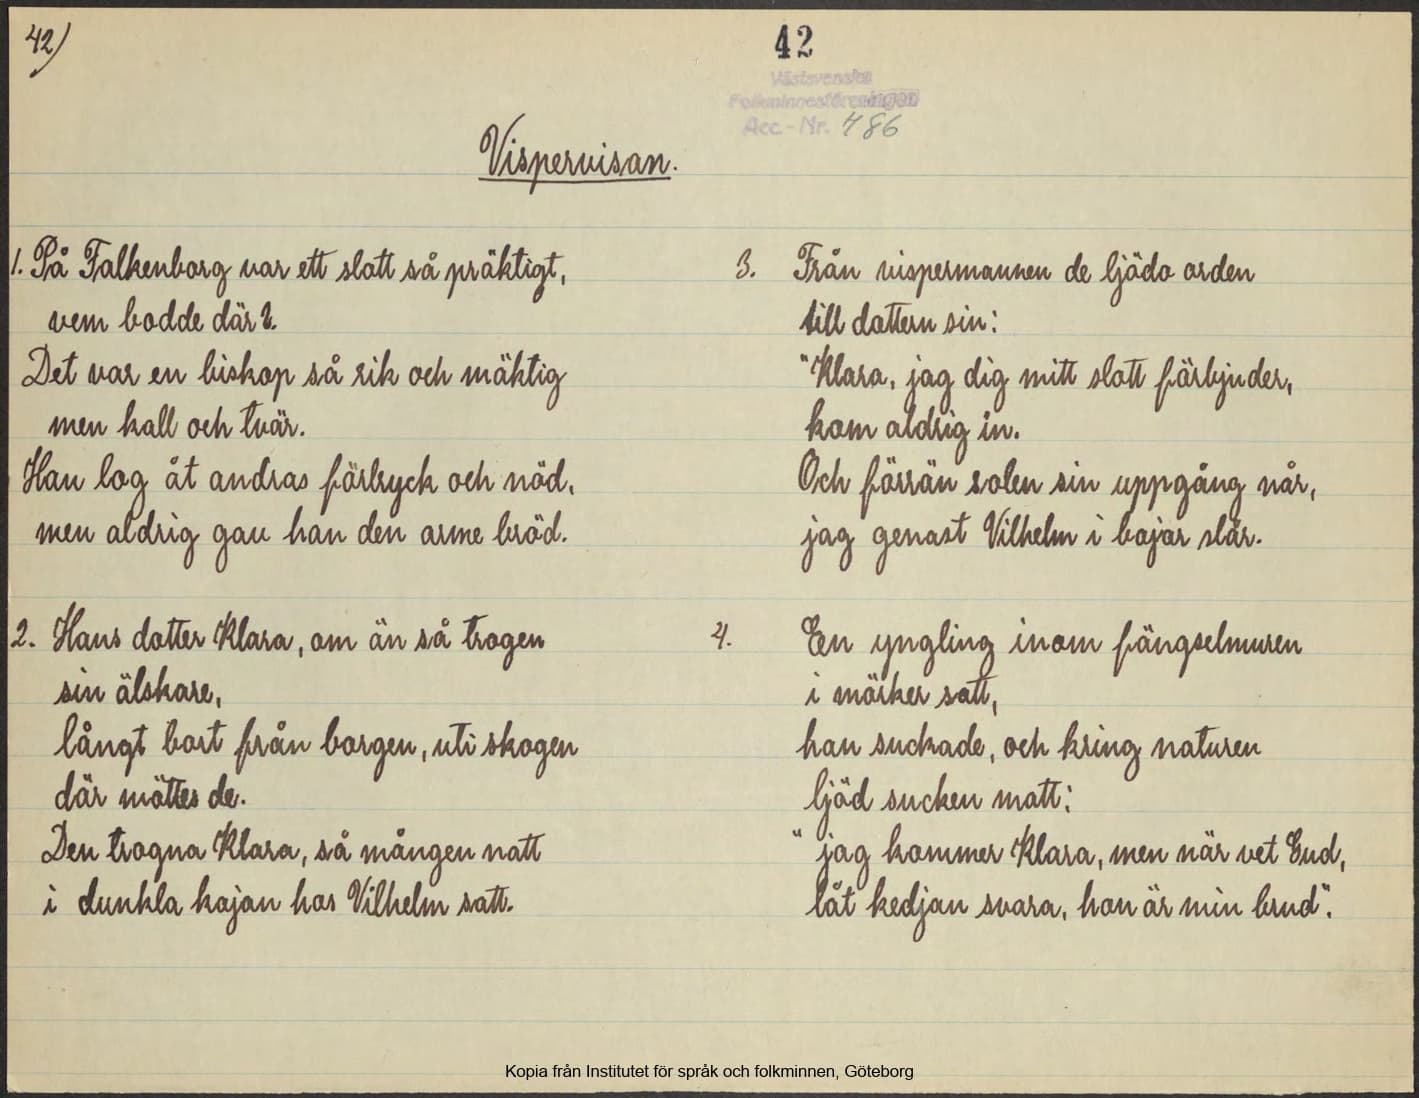 42)
42
Västsvenska
Folkminnesföreningen
Acc.-Nr. 786
Vispervisan.
1. På Falkenborg var ett slott så präktigt,
vem bodde där?
Det var en biskop så rik och mäktig
men kall och tvär.
Han log åt andras förtryck och nöd,
men aldrig gav han den arme bröd.
2. Hans dotter Klara, om än så trogen
sin älskare,
långt bort från borgen, uti skogen
där möttes de.
Den trogna Klara, så mången natt
i dunkla kojan hos Vilhelm satt.
3. Från vispermannen de ljödo orden
till dottern sin:
"Klara, jag dig mitt slott förbjuder,
kom aldrig in.
Och förrän solen sin uppgång når,
jag genast Vilhelm i bojor slår.
4. En yngling inom fängselmuren
i mörker satt,
han suckade, och kring naturen
ljöd sucken matt:
"jag kommer Klara, men när vet Gud,
låt kedjan svara, hon är min brud".
Kopia från Institutet för språk och folkminnen, Göteborg